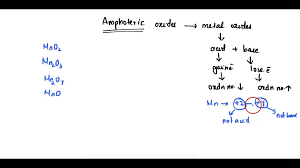 Amphoteric oxides → metal oxides
acid + base
gain ē lose ē
oxdn no. ↓ oxdn no. ↑
Mn → +2 - +7
not acid
not base
MnO₂
Mn₂O₃
Mn₂O₇
MnO